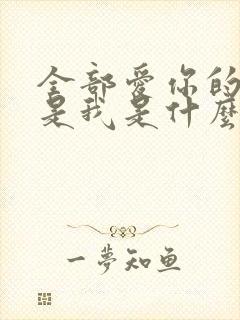 全部愛你的
是我是什麼
一夢知魚